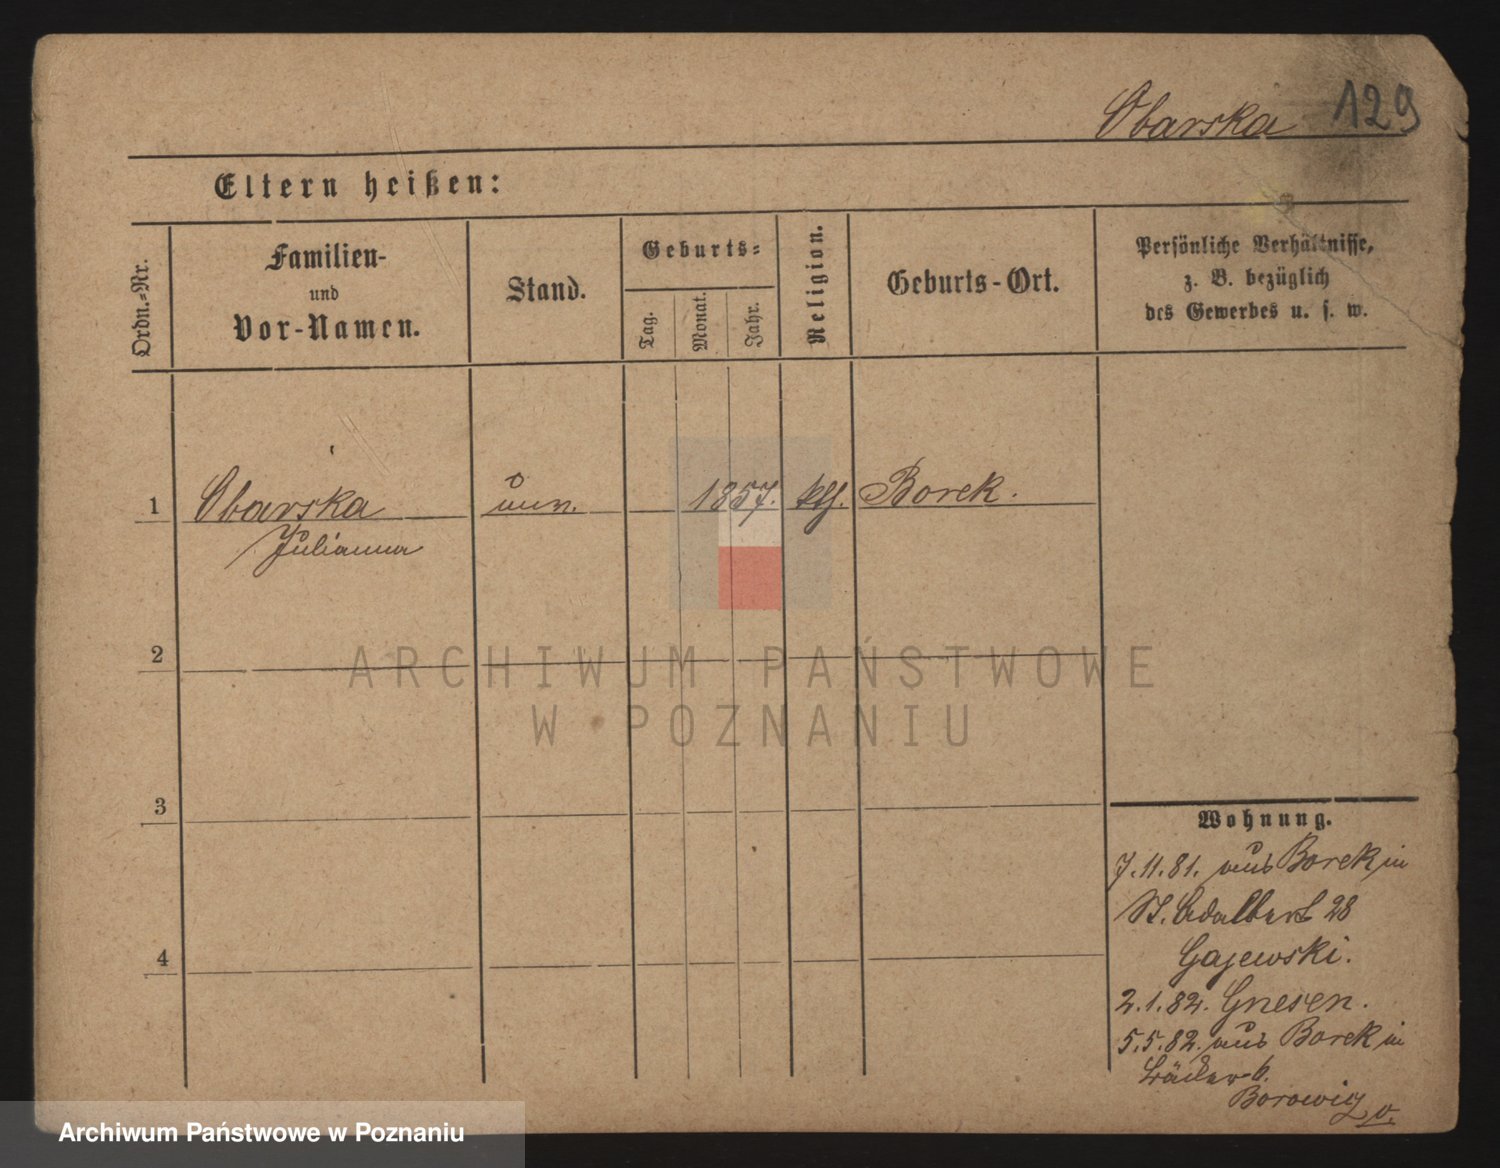 Obarska 129
Eltern heißen:
Ordn.-Nr.
Familien-
und
Vor-Namen.
Stand.
Geburts-
Tag.
Monat.
Jahr.
Religion.
Geburts-Ort.
Persönliche Verhältnisse,
z. B. bezüglich
des Gewerbes u. s. w.
1 Obarska unv. 1857. kth. Borek.
Julianna
2
3
4
Wohnung.
7.11.81. aus Borek in
St. Adalbert 28
Gajewski.
2.1.82. Gnesen.
5.5.82. aus Borek in
Bäcker 6.
ARCHIWUM PAŃSTWOWE
W POZNANIU
Archiwum Państwowe w Poznaniu